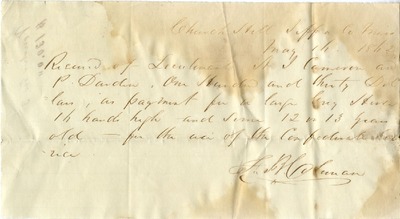 Church Hill Jefferson Co Miss
May 14 1862
Received of Lieutenant W J Cameron and
P. Darden, One Hundred and thirty Dol
lars, as payment for a large Bay Horse
14 hands high and some 12 or 13 years
old – for the use of the Confederate Ser
vice
Coleman